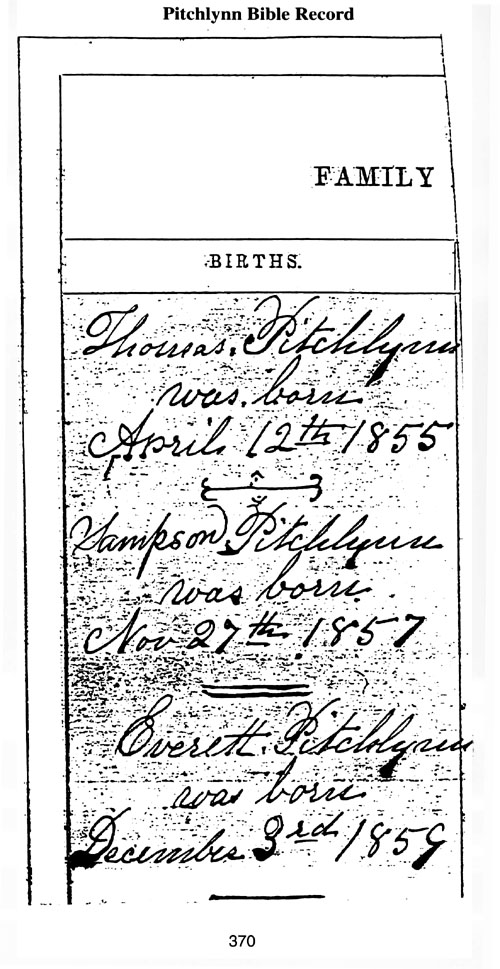 Pitchlynn Bible Record
FAMILY
BIRTHS.
Thomas. Pitchlynn
was born
April 12th 1855
Sampson Pitchlynn
was born
Nov 27th 1857
Everett Pitchlynn
was born
December 3rd 1859
370